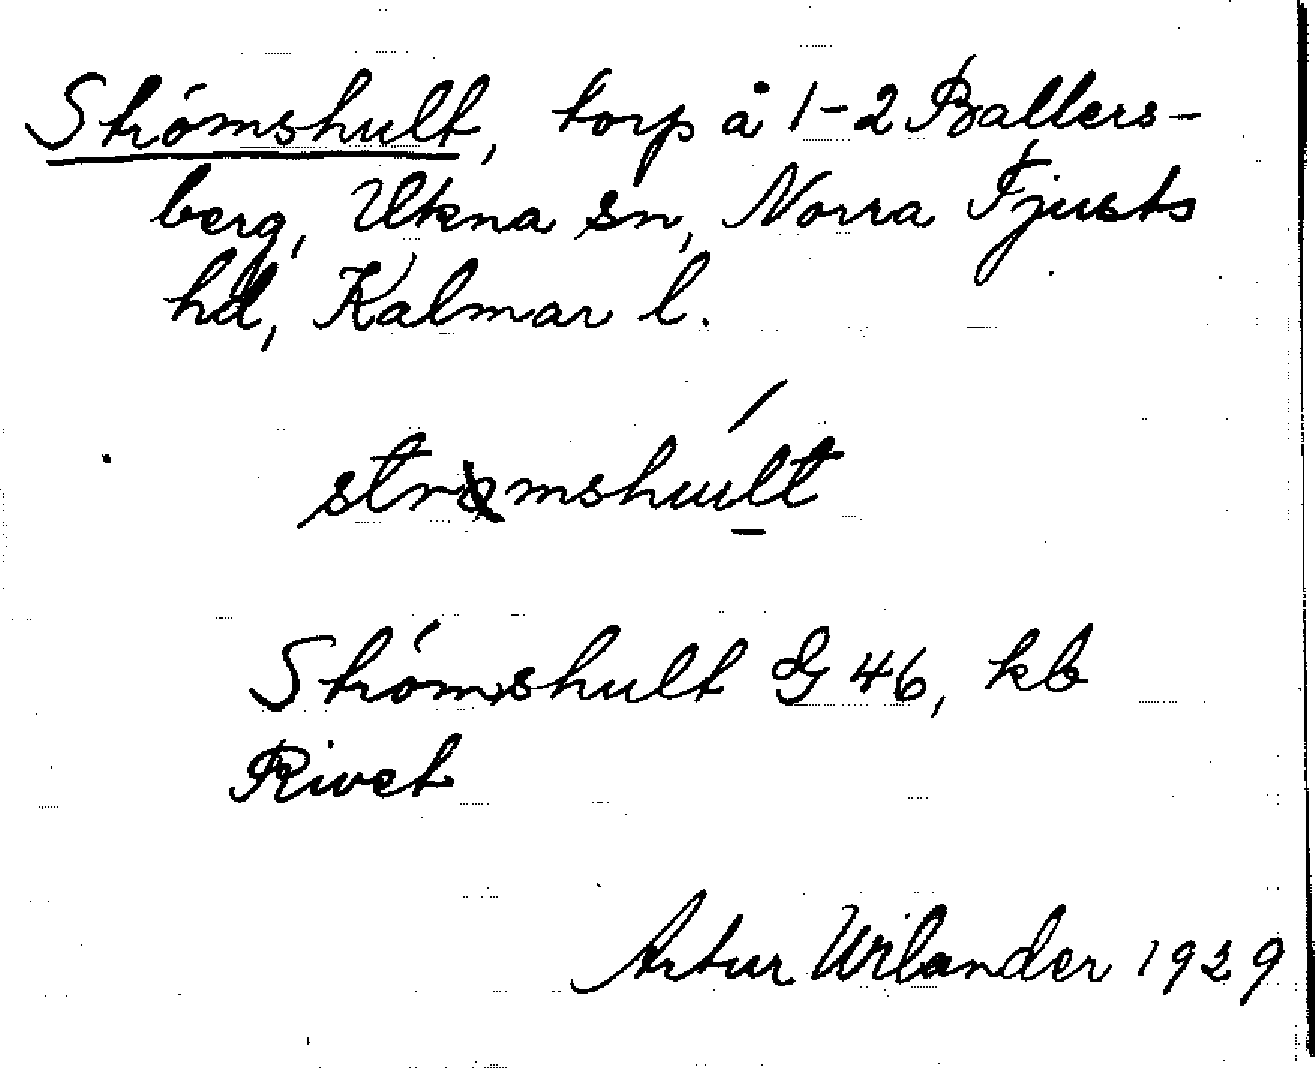 Strömshult, torp å 1-2 Ballers-
berg, Ukna sn, Norra Tjusts
hd, Kalmar l.
strømshul̲t
Strömshult G 46, kb
Rivet
Artur Wilander 1929